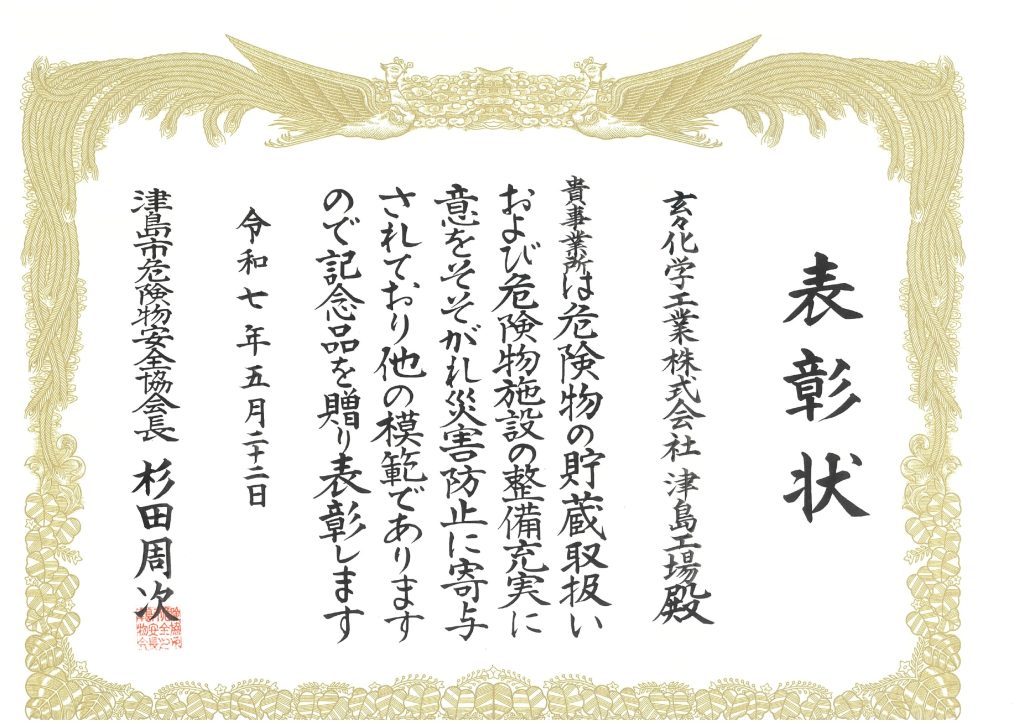 表彰状
玄々化学工業株式会社 津島工場殿
貴事業所は危険物の貯蔵取扱い
および危険物施設の整備充実に
意をそそがれ災害防止に寄与
されており他の模範であります
ので記念品を贈り表彰します
令和七年五月二十二日
津島市危険物安全協会長 杉田周次